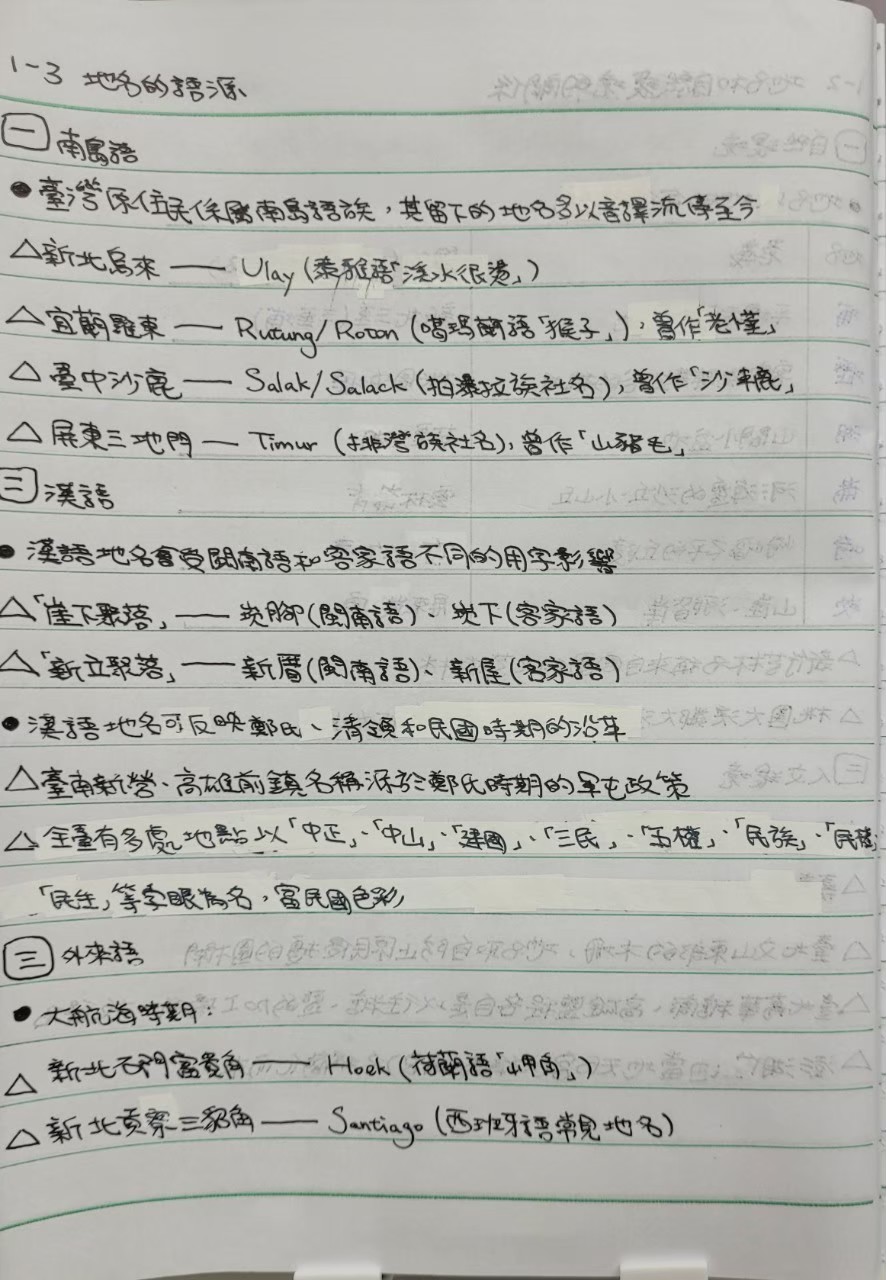 1-3 地名的語源
㊀ 南島語
● 臺灣原住民係屬南島語族，其留下的地名多以音譯流傳至今
△新北烏來 —— Ulay (泰雅語「溫水很燙」)
△宜蘭羅東 —— Rutung/Roton (噶瑪蘭語「猴子」)，曾作「老懂」
△臺中沙鹿 —— Salak/Salack (拍瀑拉族社名)，曾作「沙轆」
△屏東三地門 — Timur (排灣族社名)，曾作「山豬毛」
㊁ 漢語
● 漢語地名會受閩南語和客家語不同的用字影響
△「崖下聚落」—— 崁腳(閩南語)、崁下(客家語)
△「新立聚落」—— 新厝(閩南語)、新屋(客家語)
● 漢語地名可反映鄭氏、清領和民國時期的沿革
△臺南新營、高雄前鎮名稱源於鄭氏時期的軍屯政策
△ 全臺有多處地點以「中正」、「中山」、「建國」、「三民」、「五權」、「民族」、「民權」
「民生」等字眼為名，富民國色彩
㊂ 外來語
● 大航海時期：
△ 新北石門富貴角 —— Hoek (荷蘭語「岬角」)
△ 新北貢寮三貂角 —— Santiago (西班牙語常見地名)